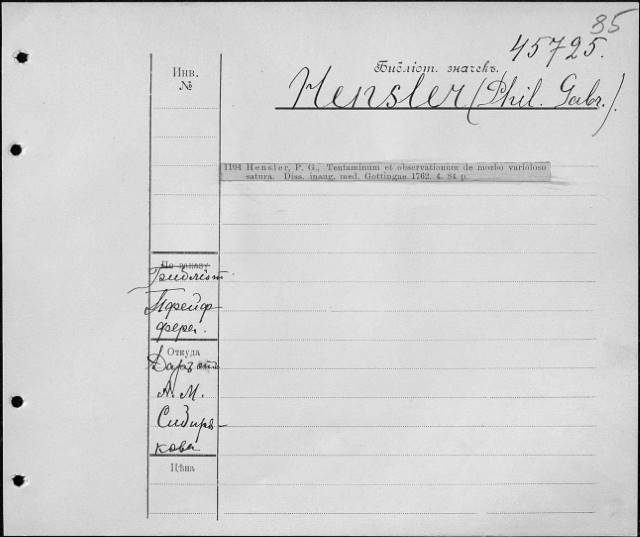 85
45725.
Инв.
№
Библіот. значекъ.
Hensler (Phil. Gabr.).
1104 Hensler, P. G., Tentaminum et observationum de morbo varioloso
satura. Diss. inaug. med. Gottingae 1762. 4. 84 p.
По заказу
Библіот
Пфейф-
фера.
Откуда
Даръ
А. М.
Сибиря-
кова
Цѣна